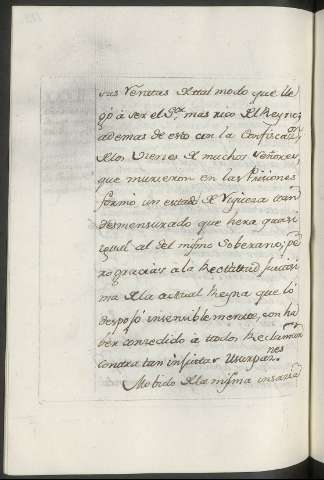 sus Ventas de tal modo que lle
gó á ser el Sor. mas rico del Reyno;
ademas de esto con la Confiscaon
de los Vienes de muchos Señores
que murieron en las Priciones
formó un estado de Viqueza tan
desmensurado que hera quasi
igual al del mismo Soberano; pe
ro gracias a la Rectitud justisi
ma de la actual Reyna que ló
despojó insensiblemente, con ha
ver consedido á todos Reclamar
contra tan injustas Usurpanes.
Mobido de la misma insasia